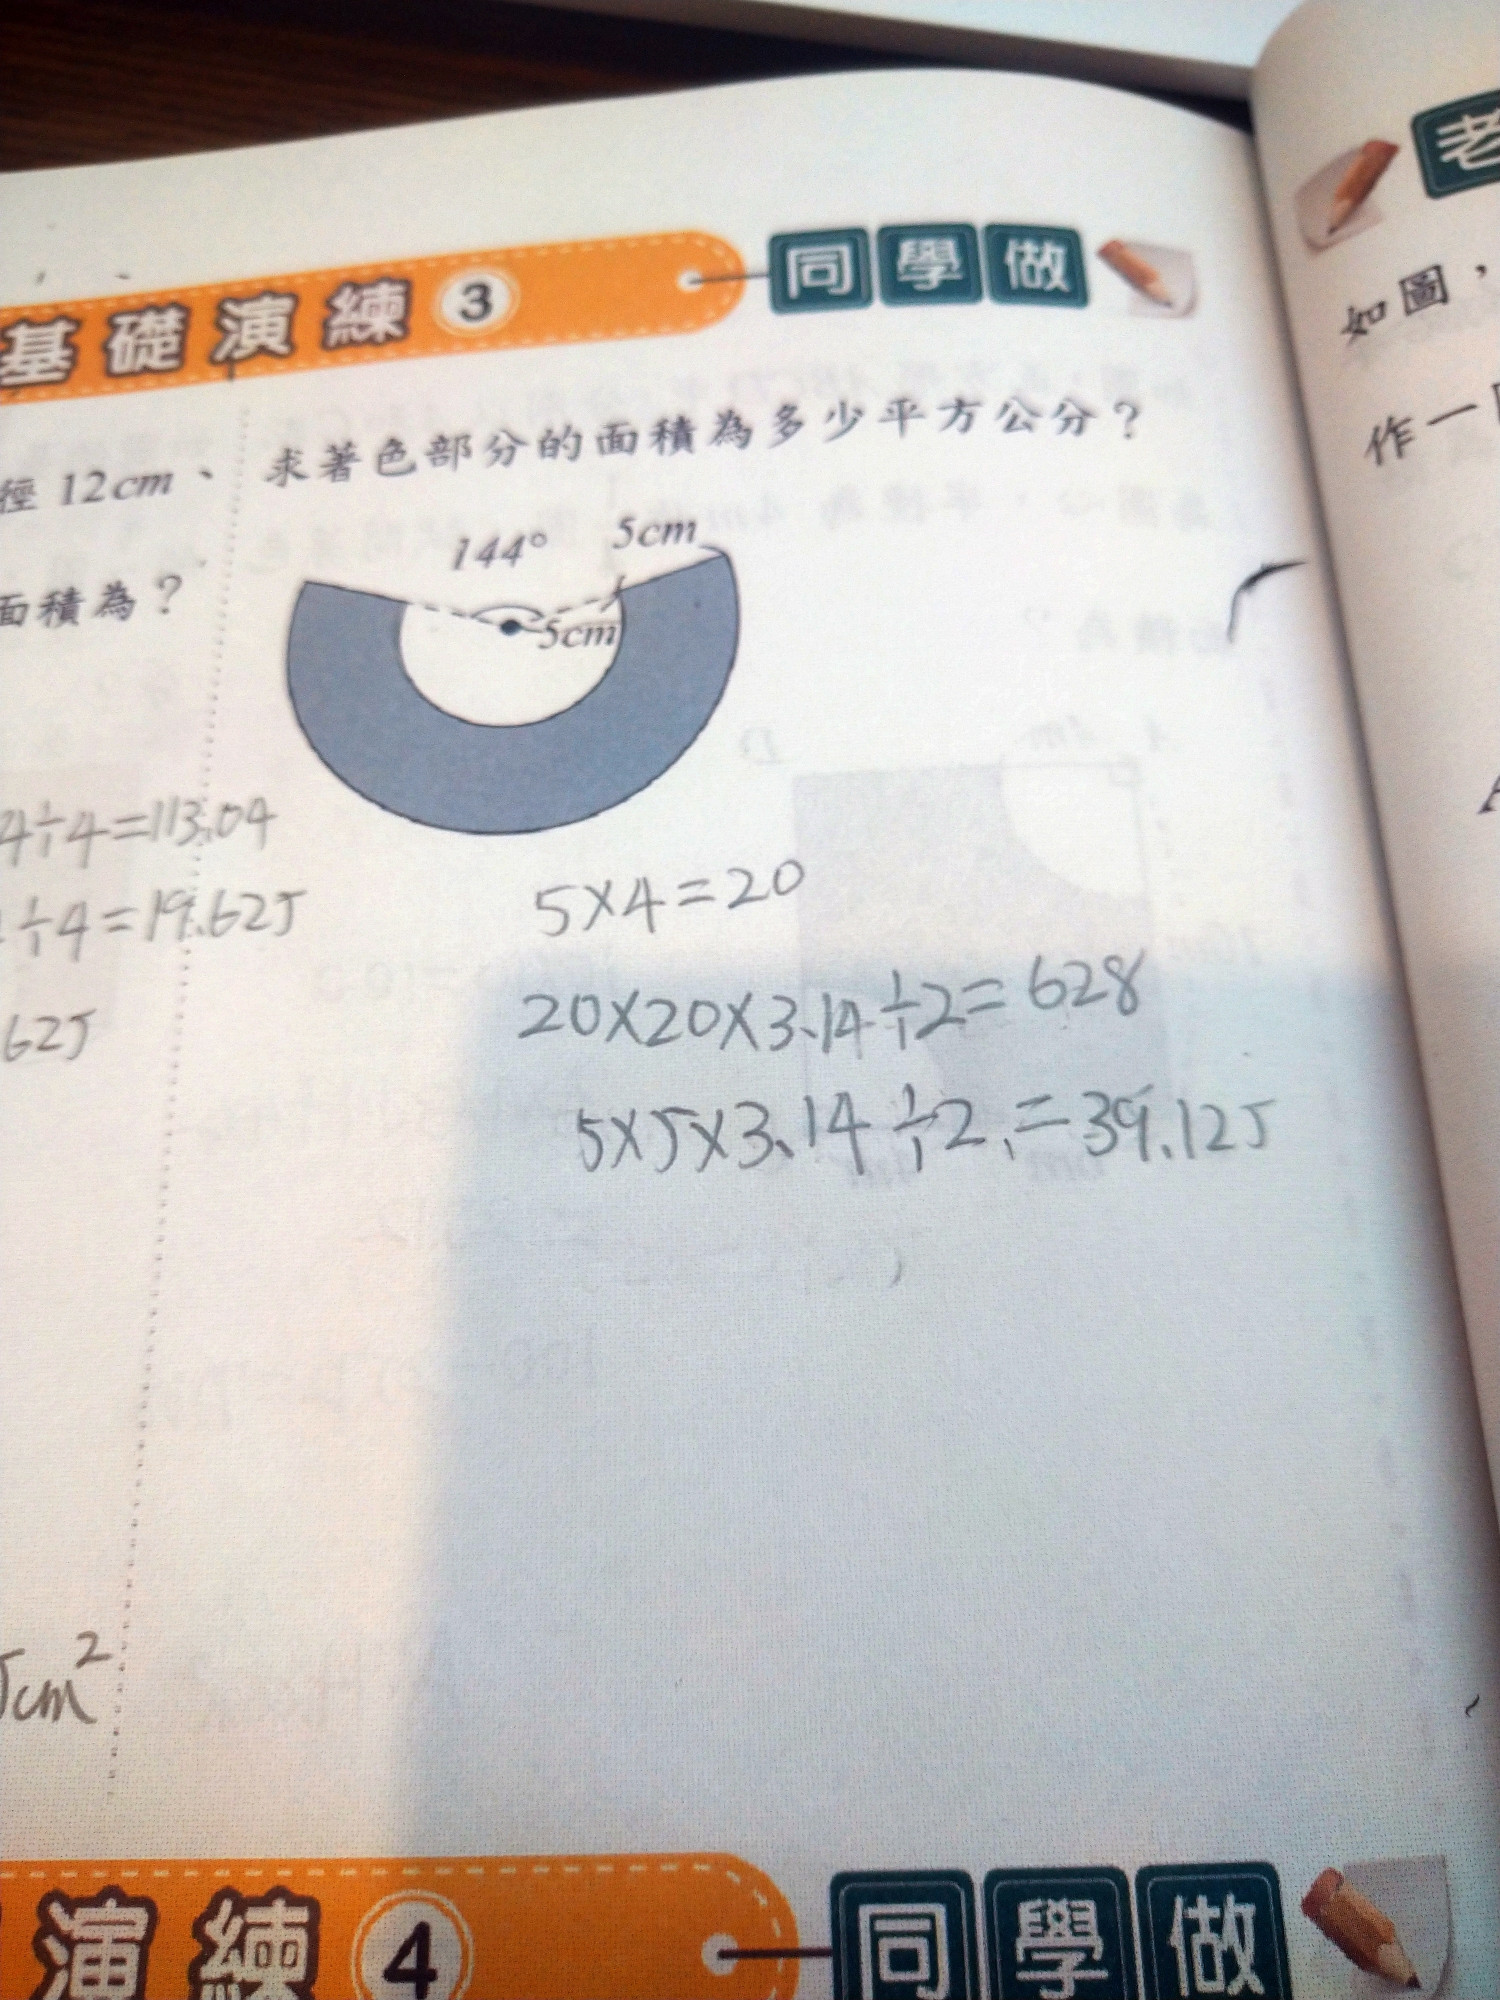 老
基礎演練 3 同學做
如圖，
作一
徑 12cm、
面積為？
求著色部分的面積為多少平方公分？
144°
5cm
5cm
4÷4=113.04
÷4=19.625
625
5×4=20
20×20×3.14÷2=628
5×5×3.14÷2=39.125
cm²
演練 4 同學做